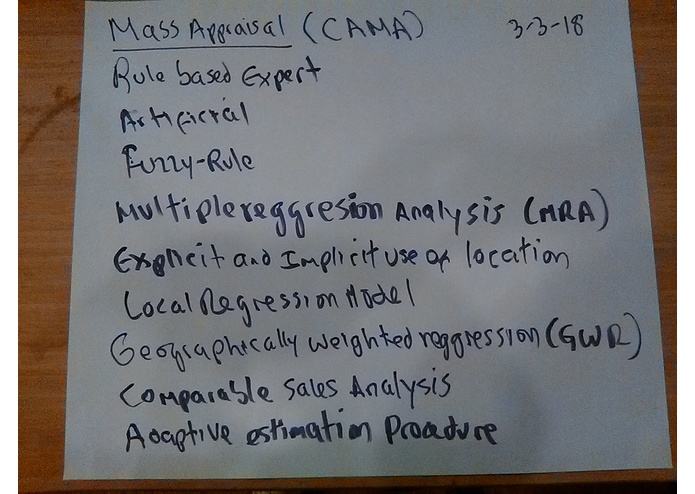 Mass Appraisal (CAMA) 3-3-18
Rule based Expert
Artificial
Fuzzy-Rule
Multiplereggresion Analysis (MRA)
Explicit and Implicit use of location
Local Regression Model
Geographically weighted reggression (GWR)
Comparable Sales Analysis
Adaptive estimation Proadure